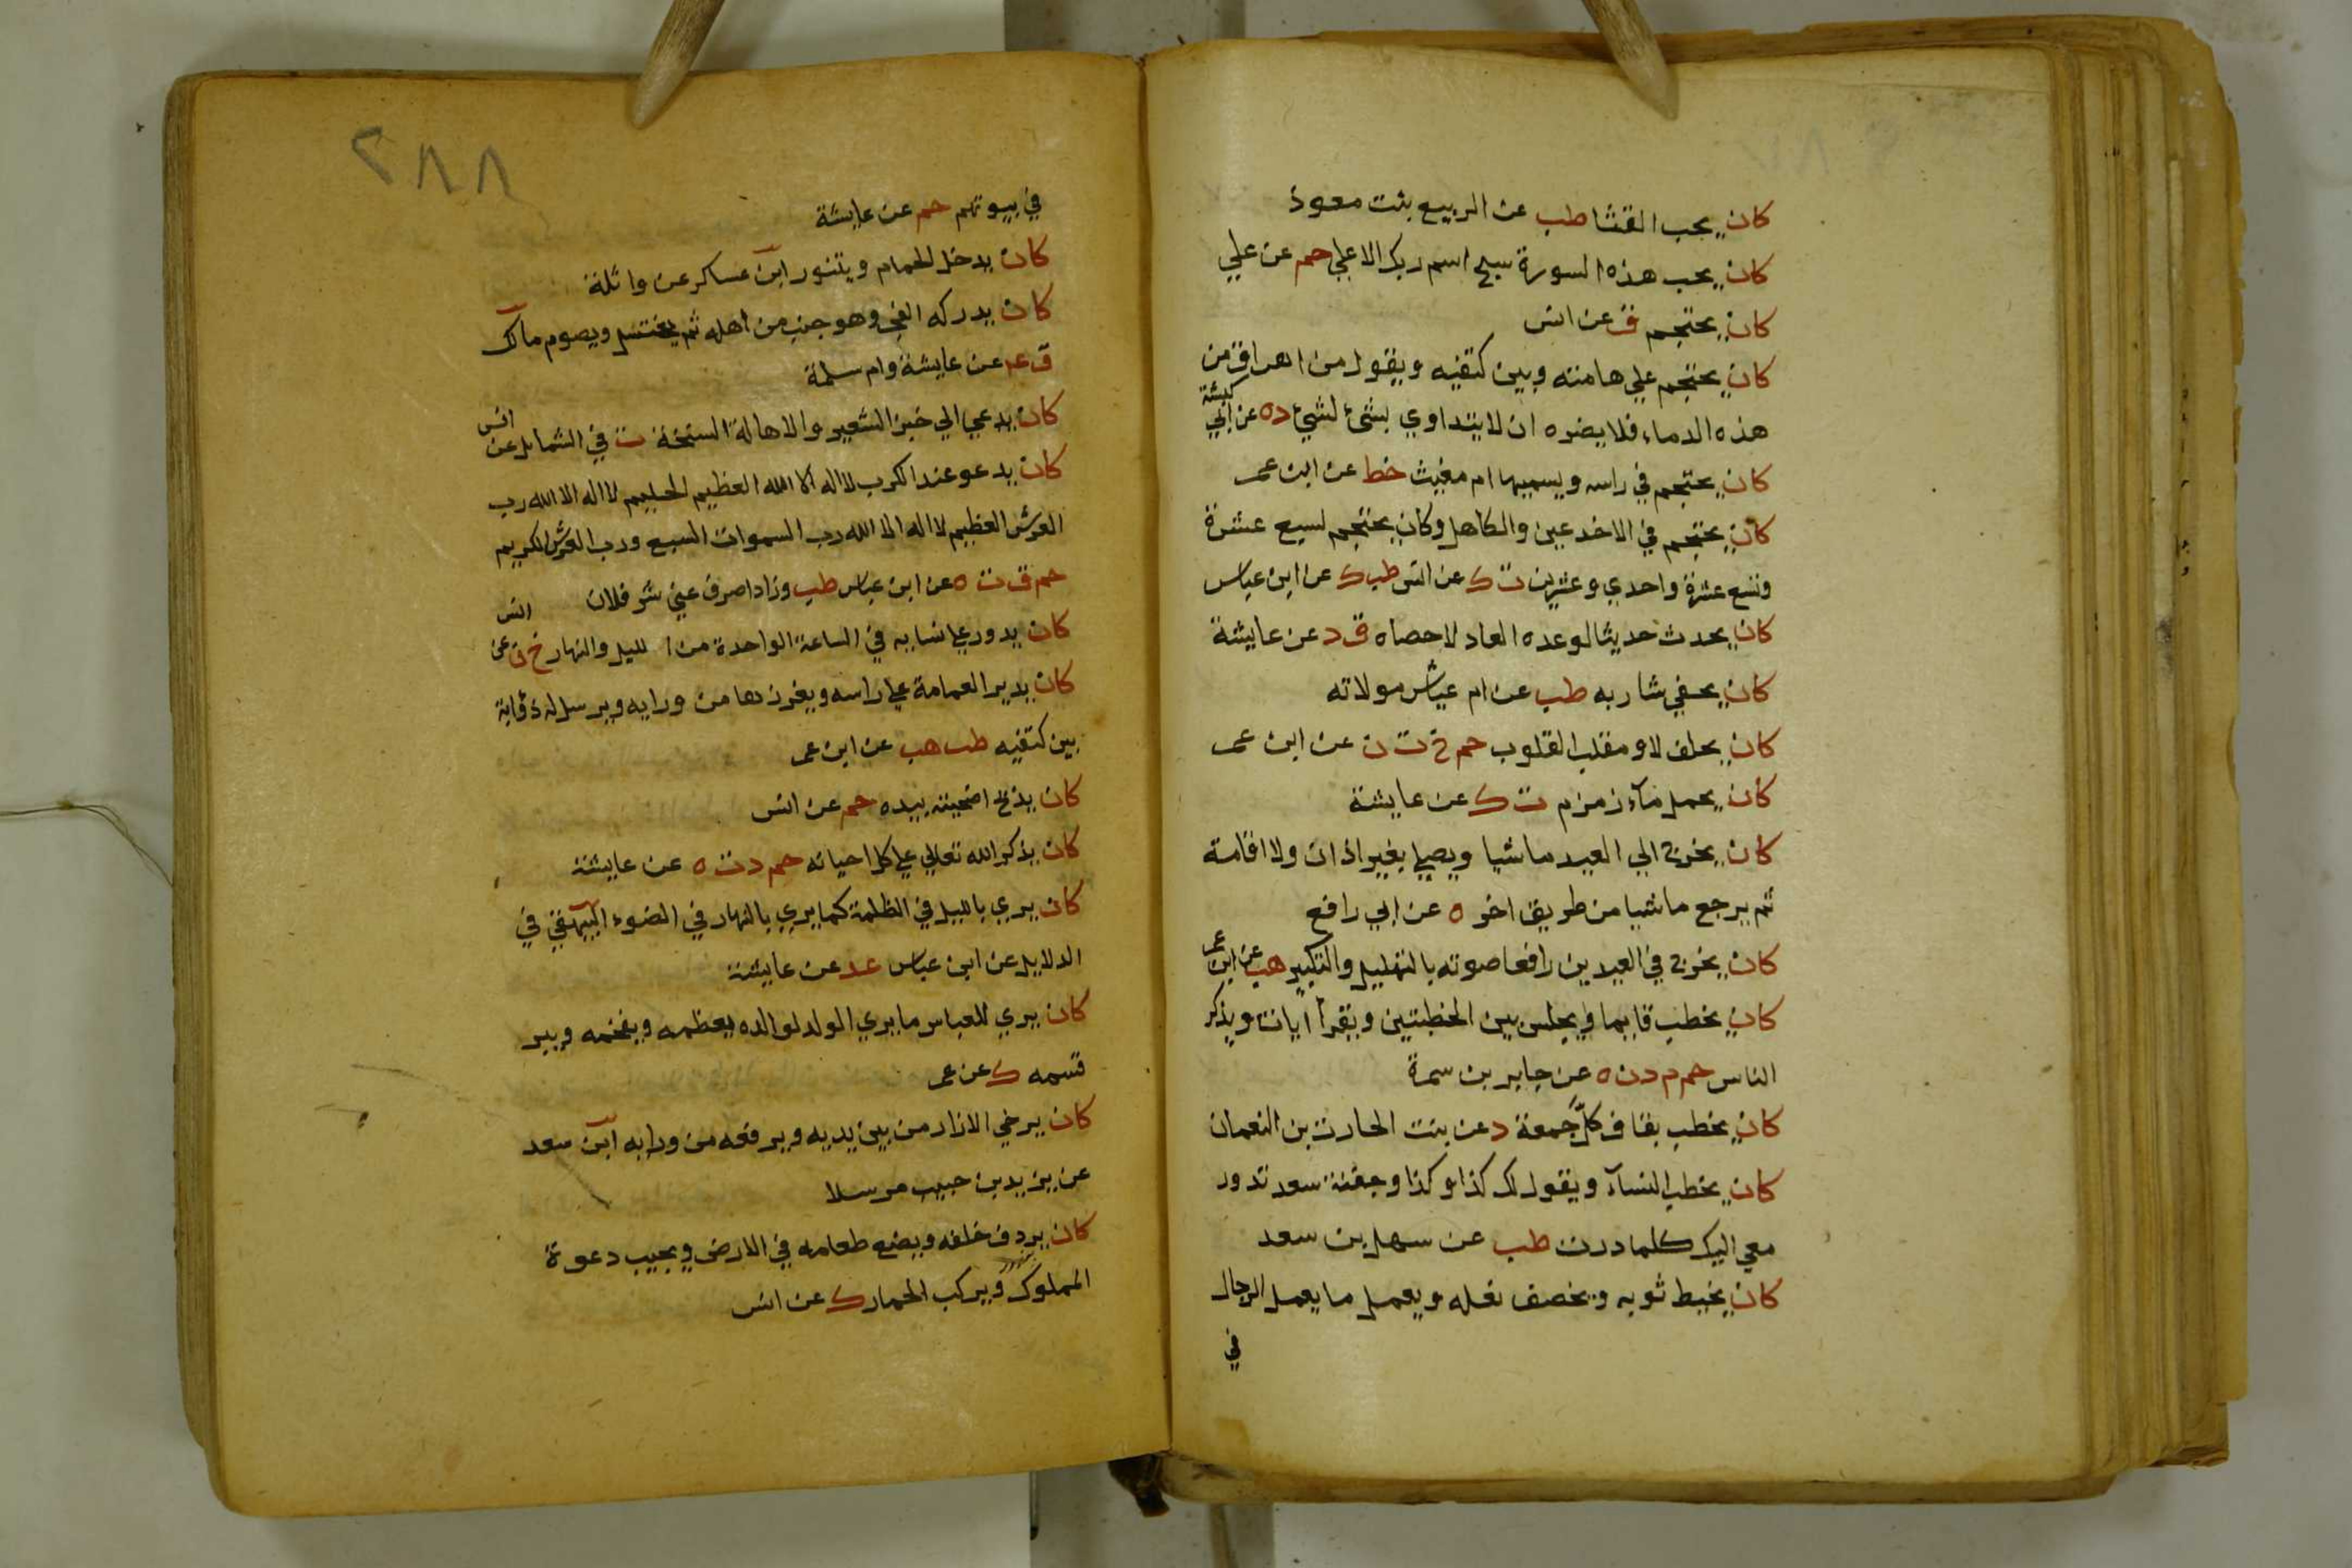 كان يحب القثا طب عن الربيع بنت معوذ
كان يحب هذه السورة سبح اسم ربك الاعلي حم عن علي
كان يحتجم ق عن انس
كان يحتجم علي هامته وبين كتفيه ويقول من اهراق من
هذه الدماء فلا يضره ان لا يتداوي بشئ لشيئ د ه عن ابي كبشة
كان يحتجم في راسه ويسميها ام مغيث خط عن ابن عمر
كان يحتجم في الاخدعين والكاهل وكان يحتجم لسبع عشرة
وتسع عشرة واحدي وعشرين ت ك عن انس طب ك عن ابن عباس
كان يحدث حديثا لو عده العاد لاحصاه ق د عن عايشة
كان يحفي شاربه طب عن ام عياش مولاته
كان يحلف لا ومقلب القلوب حم خ ت ن عن ابن عمر
كان يحمل مآء زمزم ت ك عن عايشة
كان يخرج الي العيد ماشيا ويصلي بغير اذان ولا اقامة
ثم يرجع ماشيا من طريق اخر ه عن ابي رافع
كان يخرج في العيدين رافعا صوته بالتهليل والتكبير هب عن ابن عمر
كان يخطب قايما ويجلس بين الخطبتين ويقرأ ايات ويذكر
الناس حم م د ن ه عن جابر بن سمرة
كان يخطب بقاف كلّ جمعة د عن بنت الحارث بن النعمان
كان يخطب النسآء ويقول لك كذا وكذا وجفنة سعد تدور
معي اليك كلما درت طب عن سهل بن سعد
كان يخيط ثوبه ويخصف نعله ويعمل ما يعمل الرجال
في
٢٨٨
في بيوتهم حم عن عايشة
كان يدخل الحمام ويتنور ابن عساكر عن واثلة
كان يدركه الفجر وهو جنب من اهله ثم يغتسل ويصوم مالك
ق عد عن عايشة وام سلمة
كان يدعي الي خبز الشعير والاهالة السنخة ت في الشمايل عن انس
كان يدعو عند الكرب لا اله الا الله العظيم الحليم لا اله الا الله رب
العرش العظيم لا اله الا الله رب السموات السبع ورب العرش الكريم
حم ق ت ه عن ابن عباس طب وزاد اصرف عني شر فلان
كان يدور علي نسايه في الساعة الواحدة من الليل والنهار خ ن عن انس
كان يدير العمامة علي راسه ويغرزها من ورايه ويرسل له ذؤابة
بين كتفيه طب هب عن ابن عمر
كان يذبح اضحيته بيده حم عن انس
كان يذكر الله تعالي علي كل احيانه حم د ت ه عن عايشة
كان يري بالليل في الظلمة كما يري بالنهار في الضوء البيهقي في
الدلايل عن ابن عباس عد عن عايشة
كان يري للعباس ما يري الولد لوالده يعظمه ويفخمه ويبر
قسمه ك عن عمر
كان يرخي الازار من بين يديه ويرفعه من ورايه ابن سعد
عن يزيد بن حبيب مرسلا
كان يردف خلفه ويضع طعامه في الارض ويجيب دعوة
المملوك ويركب الحمار ك عن انس